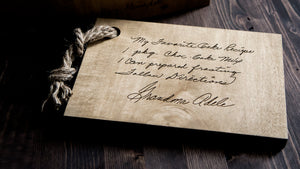 My Favorite Cake Recipe
1 pkg. Choc Cake Mix
1 Can prepared frosting
Follow Directions
Grandma Adele